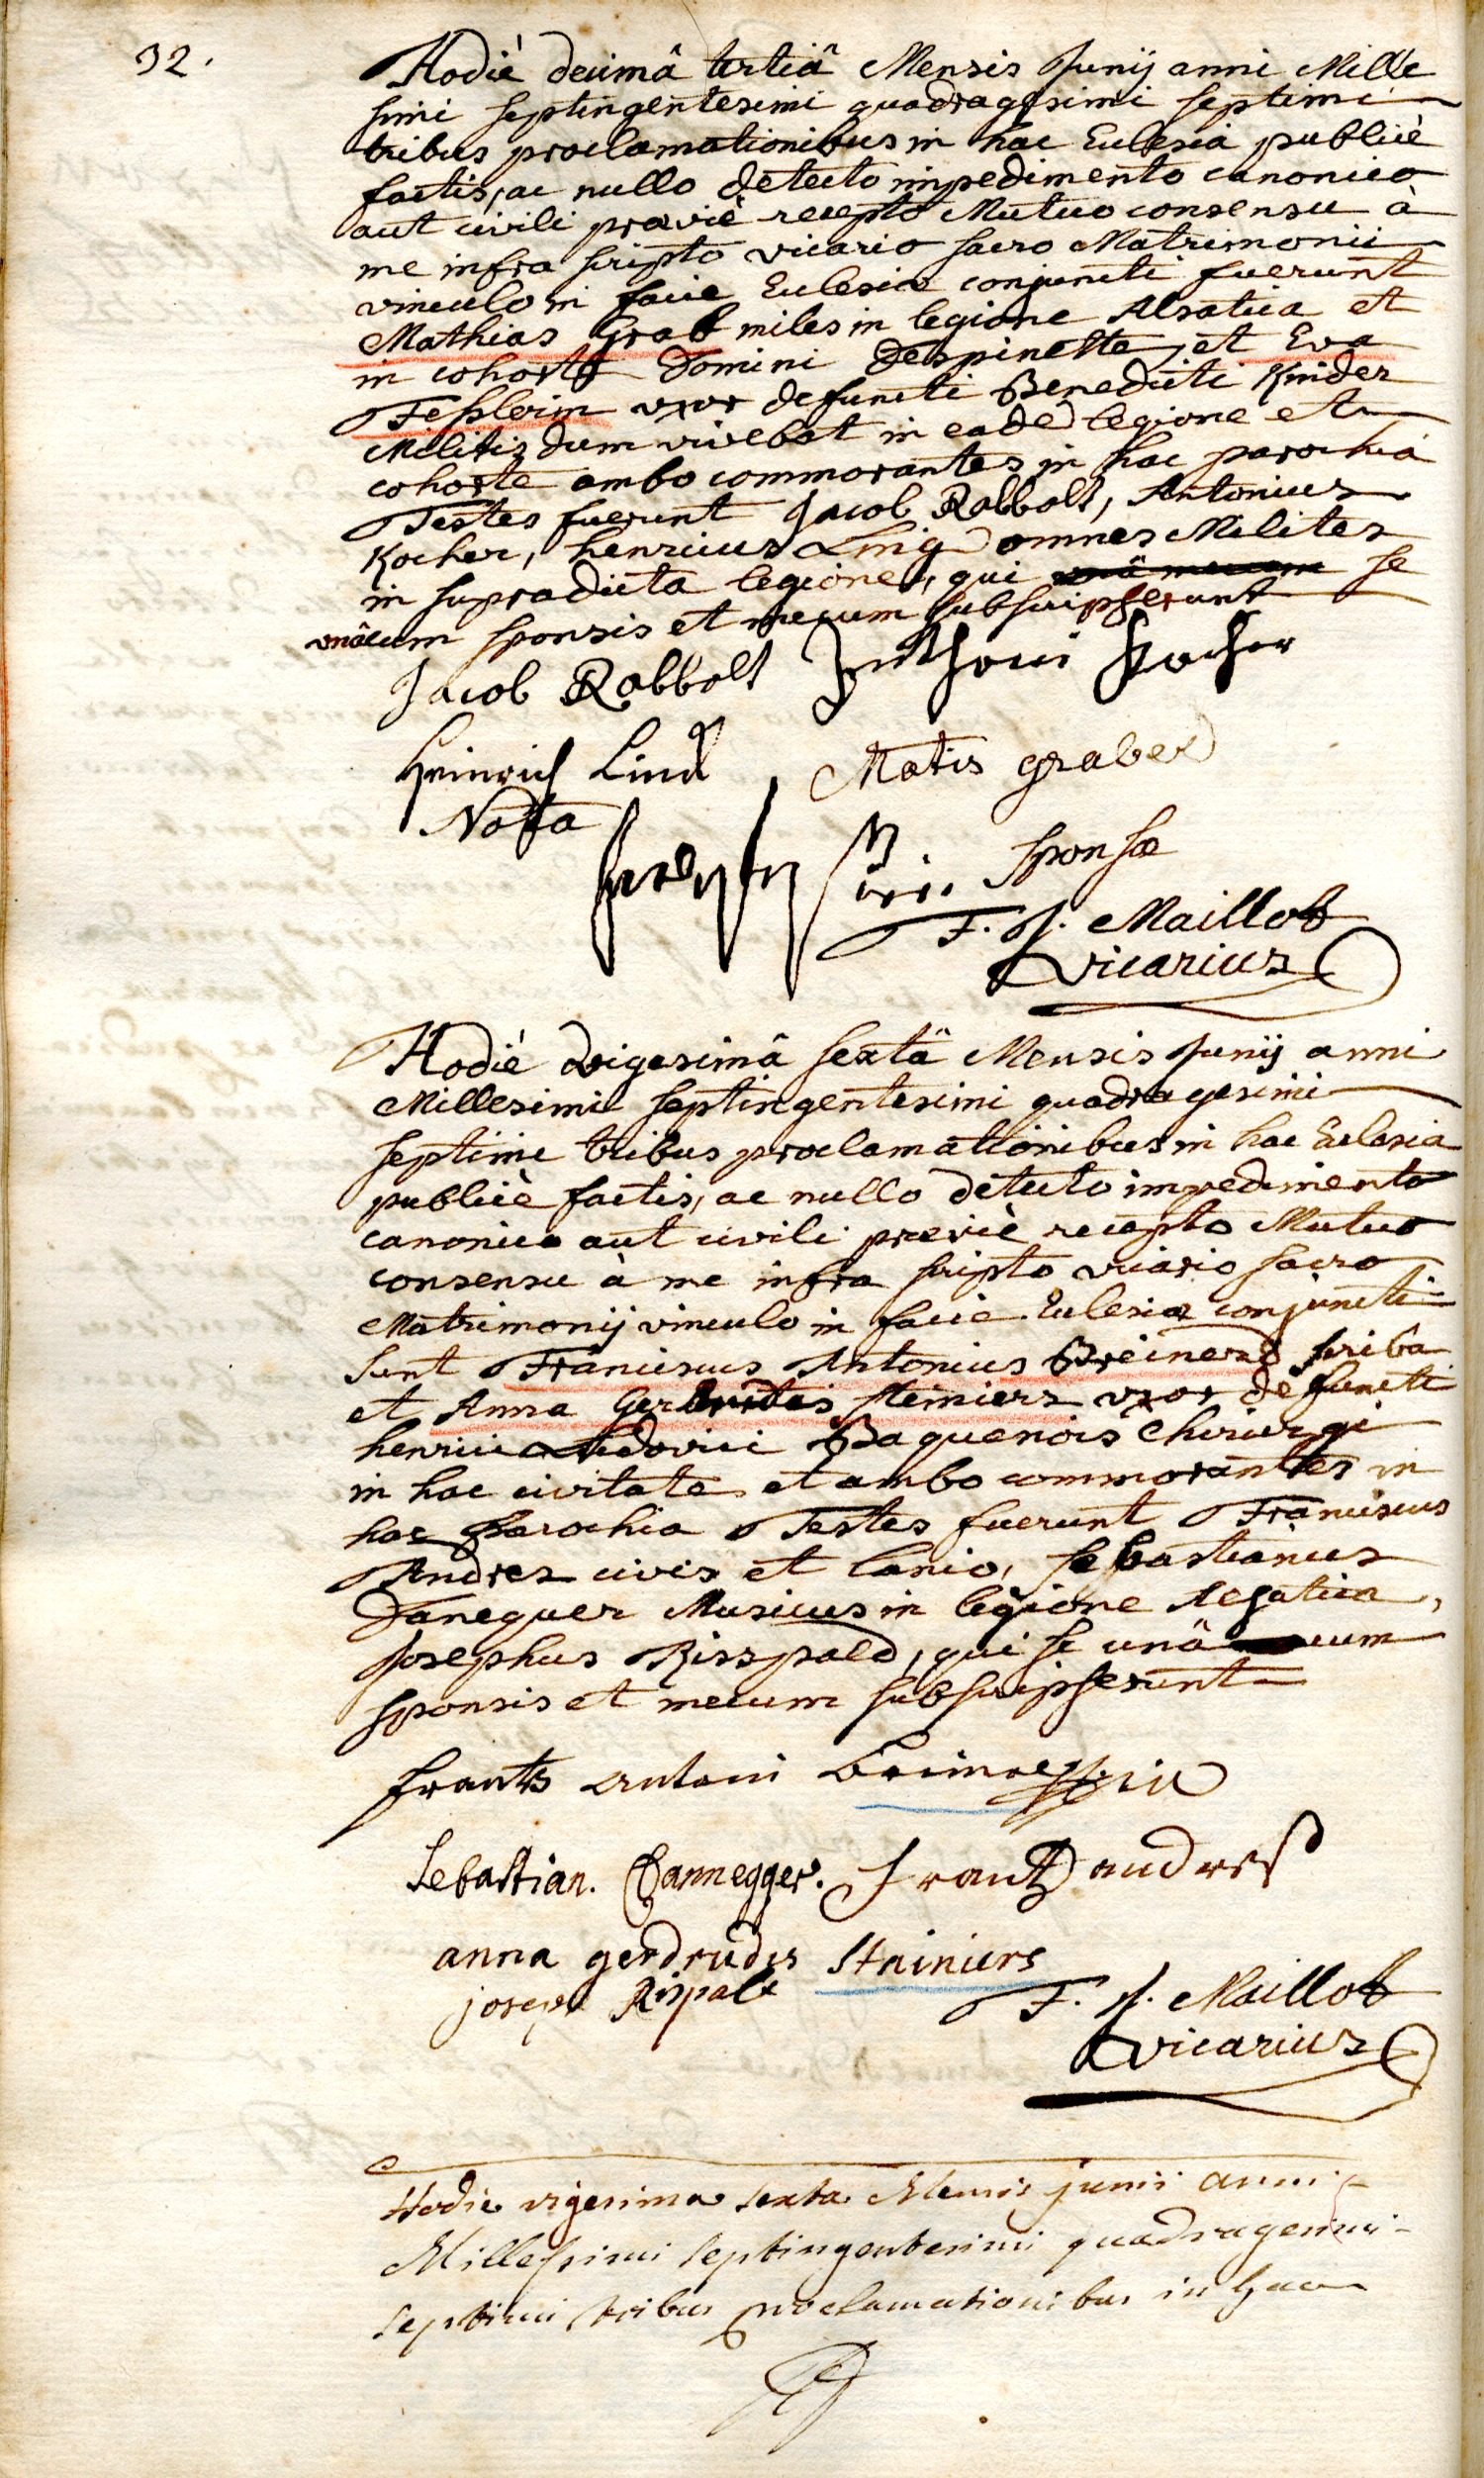 32.
Hodiè decimâ tertiâ Mensis Junij anni Mille
simi septingentesimi quadragesimi septimi
tribus proclamationibus in hac Ecclesia publicè
factis, ac nullo detecto impedimento canonico
aut civili praeviè recepto Mutuo consensu à
me infra scripto vicario sacro Matrimonii
vinculo in facie Ecclesiae conjuncti fuerunt
Mathias Grab miles in legione Alsatica et
in cohorte Domini Despinette, et Eva
Feslerin uxor defuncti Benedicti Kinder
Militis dum vivebat in eadē legione et
cohorte ambo commorantes in hac parochia
Testes fuerunt Jacob Rabbolt, Antonius
Kocher, henricus Ling omnes Milites
in supradicta legione, qui unâ mecum se
unâcum sponsis et mecum subscripserunt
Jacob Rabbolt Anthoni Kocher
Heinrich Lind Matis graber
Nota
sponsae
F. J. Maillot
vicarius
Hodiè vigesimâ sextâ Mensis Junij anni
Millesimi septingentesimi quadragesimi
septimi tribus proclamationibus in hac Eclesia
publicè factis, ac nullo detecto impedimento
canonico aut civili praeviè recepto Mutuo
consensu à me infra scripto vicario sacro
Matrimonij vinculo in facie Ecclesiae conjuncti
sunt Franciscus Antonius Breinerd scriba
et Anna Gertrudes steiniers uxor defuncti
henrici Ludovici Baquenois Chirurgi
in hac civitate et ambo commorantes in
hac Parochia Testes fuerunt Franciscus
Andres civis et lanio, sebastianus
Daneguer Musicus in legione alsatica,
Josephus Risspald, qui se unâ cum
sponsis et mecum subscripserunt
frants antoni
Sebastian. Dannegger. Frantz andres
anna gerdrudis Stainiers
joseph Rispalt
F. J. Maillot
vicarius
Hodie vigesima sexta Mensis junii anni
Millesimi septingentesimi quadragesimi
septimi tribus proclamationibus in hac